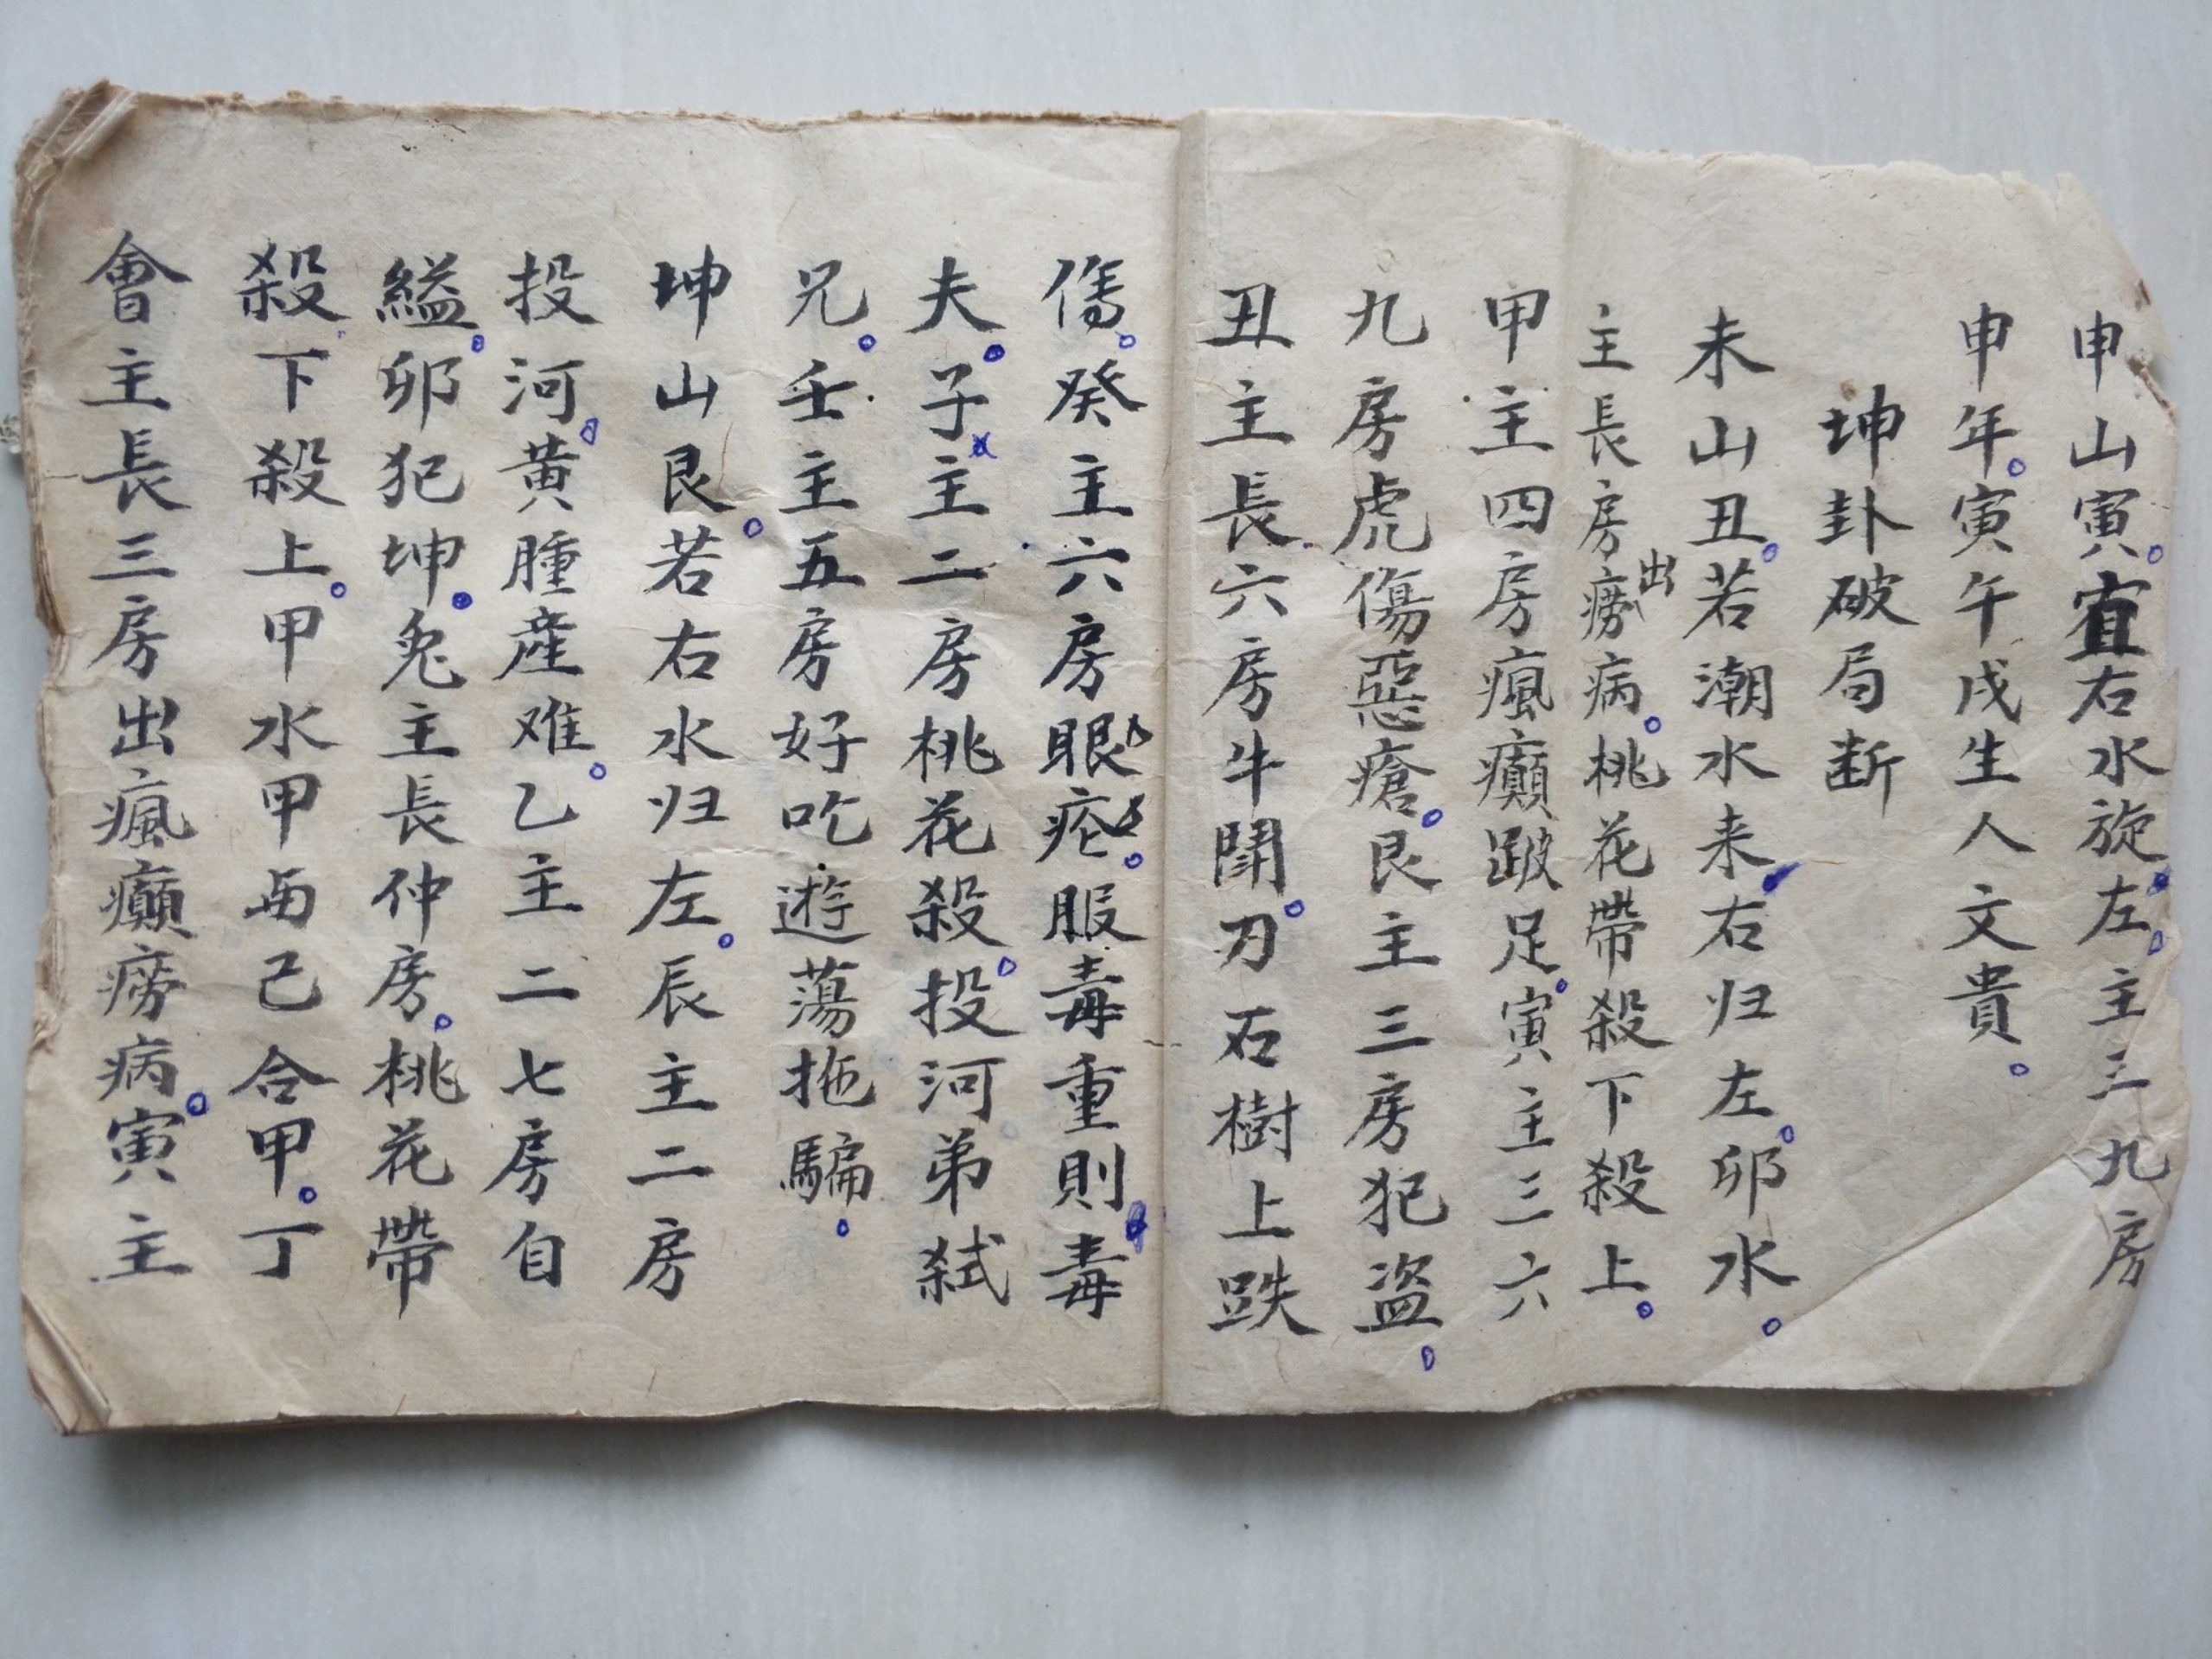 申山寅。宜右水旋左。主三九房
申年。寅午戌生人文貴。
坤卦破局断
未山丑。若潮水来右归左。卯水。
主長房出癆病。桃花帶殺下殺上。
甲主四房瘋癲跛足。寅主三六
九房虎傷惡瘡。艮主三房犯盗。
丑主長六房牛鬪。刃石樹上跌
傷。癸主六房眼疼。服毒重則毒
夫。子主二房桃花殺。投河弟弒
兄。壬主五房好吃遊蕩拖騙。
坤山艮。若右水归左。辰主二房
投河。黄腫産难。乙主二七房自
縊。卯犯坤。兔主長仲房。桃花帶
殺下殺上。甲水甲西己合甲。丁
會主長三房出瘋癲癆病。寅主